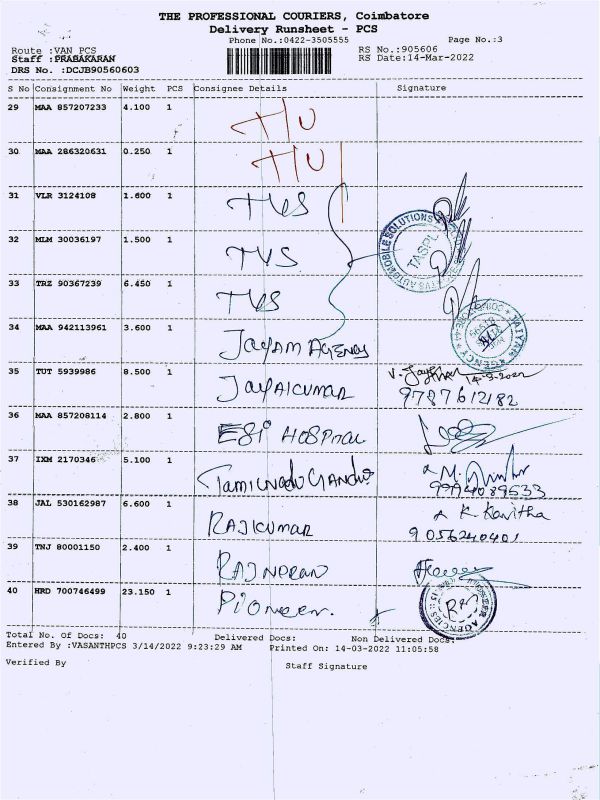 THE PROFESSIONAL COURIERS, Coimbatore
Delivery Runsheet - PCS
Phone No.:0422-3505555
Page No.:3
Route :VAN PCS
RS No.:905606
Staff :PRABAKARAN
RS Date:14-Mar-2022
DRS No. :DCJB90560603
S No Consignment No Weight PCS Consignee Details Signature
29 MAA 857207233 4.100 1 T/U
30 MAA 286320631 0.250 1 T/U
31 VLR 3124108 1.600 1 TVS
32 MLM 30036197 1.500 1 TVS
TASPL
33 TRZ 90367239 6.450 1 TVS
34 MAA 942113961 3.600 1 Jayam Agency
35 TUT 5939986 8.500 1 Jayakumar 14-3-2022
9787612182
36 MAA 857208114 2.800 1 ESI Hospital
37 IXM 2170346 5.100 1 Tamilnadu
9994089533
38 JAL 530162987 6.600 1 Rajkumar K. Kavitha
9056240401
39 TNJ 80001150 2.400 1
40 HRD 700746499 23.150 1 Pioneer.
Total No. Of Docs: 40 Delivered Docs: Non Delivered Docs:
Entered By :VASANTHPCS 3/14/2022 9:23:29 AM Printed On: 14-03-2022 11:05:58
Verified By Staff Signature